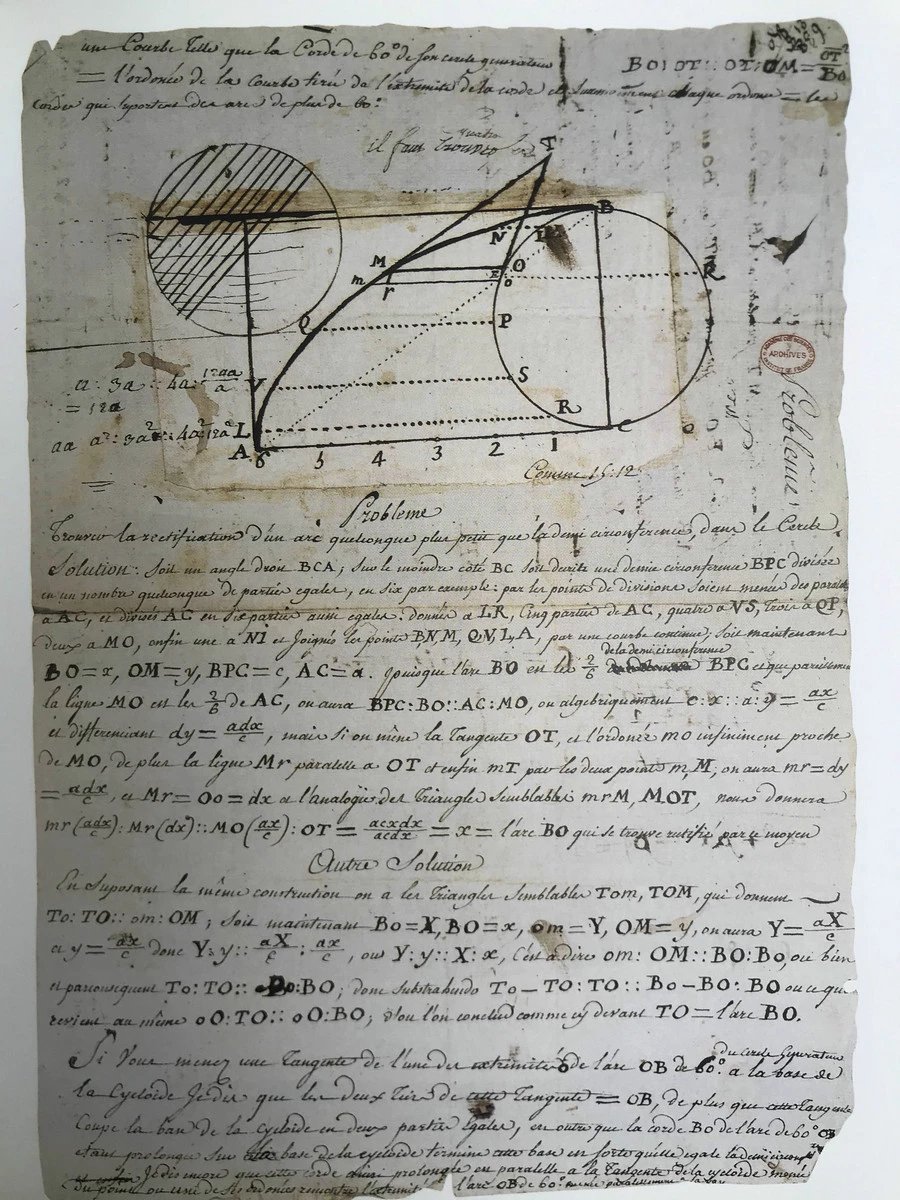 une Courbe telle que la Corde de 60° de son cercle generateur
= l'ordonée de la Courbe tirée de l'extremité de la corde et chaque ordonée = les
BO : OT :: OT : OM = OT²/BO
cordes qui suportent des arc de plus de 60°
il faut trouver
T
B
N I
M O
m r o
Q P
a : 3a :: 4a : 12aa/a
= 12a
V S
aa a² : 3a² :: 4a² : 12a²
L R
A 6 5 4 3 2 1 C 0
Comme 15 : 12
ARCHIVES
Probleme
Probleme
Trouver la rectification d'un arc quelconque plus petit que la demi circonference, dans le Cercle.
Solution : soit un angle droit BCA ; sur le moindre côté BC soit decrite une demie circonference BPC divisée
en un nombre quelconque de partie egales, en six par exemple : par les points de divisions soient menée des paralelles
a AC, et divisés AC en six partie aussi egales : donnés a LR, Cinq partie de AC, quatre a VS, trois a QP,
deux a MO, enfin une a NI et Joignés les points B, N, M, Q, V, L, A, par une courbe continue ; soit maintenant
BO = x, OM = y, BPC = c, AC = a. Puisque l'arc BO est les 2/6 de la demi circonference BPC et que pareillement
la ligne MO est les 2/6 de AC, on aura BPC : BO :: AC : MO, ou algebriquement c : x :: a : y = ax/c
et differenciant dy = adx/c, mais si on mène la Tangente OT, et l'ordonée mo infiniment proche
de MO, de plus la ligne Mr paralelle a OT et enfin mT par les deux points m M, on aura mr = dy
= adx/c, et Mr = Oo = dx et l'analogie des Triangles semblables mrM, MOT, nous donnera
mr (adx/c) : Mr (dx) :: MO (ax/c) : OT = acxdx/acdx = x = l'arc BO qui se trouve rectifié par ce moyen
Autre Solution
En suposant la même construction on a les Triangles semblables Tom, TOM, qui donnent
To : TO :: om : OM ; soit maintenant Bo = X, BO = x, om = Y, OM = y, on aura Y = aX/c
et y = ax/c donc Y : y :: aX/c : ax/c, ou Y : y :: X : x, C'est a dire om : OM :: BO : Bo, ou bien
et parconsequent To : TO :: Bo : BO ; donc substrahendo To – TO : TO :: Bo – BO : BO ou ce qui
revient au même oO : TO :: oO : BO ; d'ou l'on conclud comme cy devant TO = l'arc BO.
Si Vous menez une Tangente de l'une des extremité de l'arc OB de 60° du cercle generateur a la base de
la Cycloïde Je dis que les deux Tiers de cette Tangente = OB, de plus que cette Tangente
Coupe la base de la cycloïde en deux partie Egales, en outre que la corde BO de l'arc de 60° OB
etant prolongé sur la base de la cycloïde termine cette base en sorte qu'elle egale la demi circonf
Je dis encore que cette corde ainsi prolongée est paralelle a la Tangente de la cycloïde menée
du point ou une de ses ordonées rencontre l'extremité l'arc OB de 60°